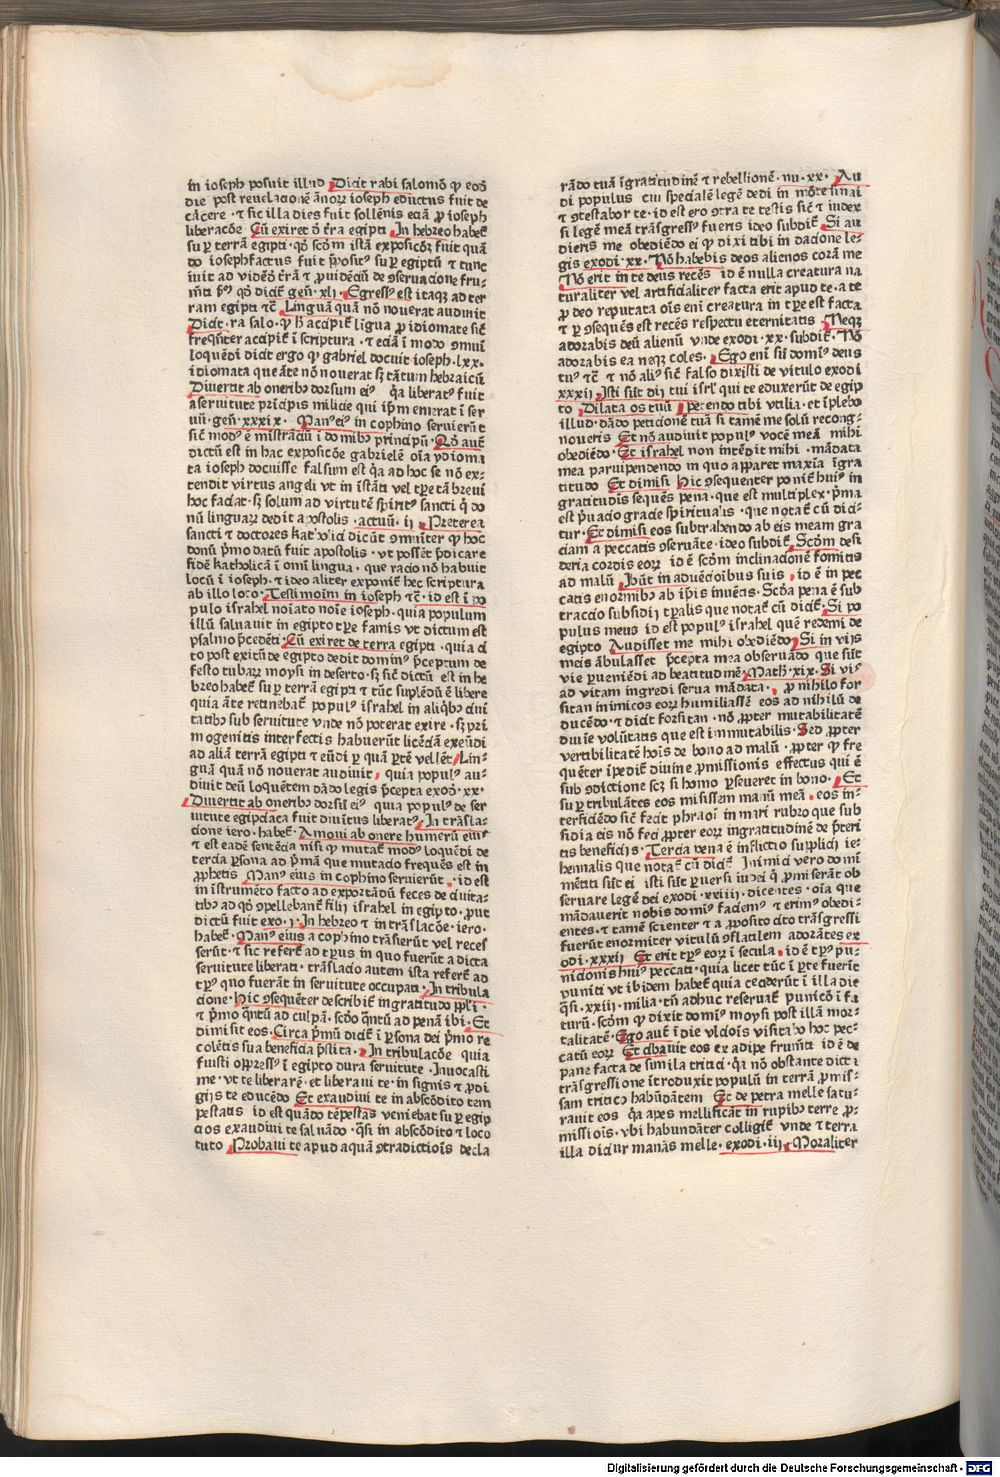 in ioseph posuit illud Dicit rabi salomō ꝙ eoꝺ
die post reuelacionē āno℞ ioseph eductus fuit de
cācere · ⁊ sic illa dies fuit sollēnis eciā ꝓ ioseph
liberacōe Cū exiret ꝺ t̄ra egipti In hebreo habeť
suꝑ terrā egipti · qꝺ scōm istā exposicōꝫ fuit quā
do ioseph factus fuit p̄posit⁹ suꝑ egiptū ⁊ tunc
iuit ad
ram egipti ⁊c̄ Linguā quā nō nouerat audiuit
Dicit · ra salo · ꝙ
loquēdi dicit ergo ꝙ gabriel docuit ioseph · lxx ·
idiomata que āte nō nouerat sꝫ tātum hebraicū
Diuertit ab onerib⁹ dorsum ei⁹ q̄a liberat⁹ fuit
a seruitute prīcipis milicie qui ip̄m emerat ī ser
uū · geñ · xxxix · Man⁹ ei⁹ in cophino seruierūt
sic̄ mod⁹ ē mīstrāciū ī domib⁹ principū · Qꝺ aut̄
dictū est in hac exposicōe gabrielē oīa ydioma
ta ioseph docuisse falsum est q̄a ad hoc se nō ex-
tendit virtus angeli vt in īstāti vel tꝑe tā breui
hoc faciat · sꝫ solum ad virtutē spirit⁹ sancti q̄ do
nū lingua℞ dedit apostolis · actuū · ii Preterea
sancti ⁊ doctores katholici dicūt ꝯmuniter ꝙ hoc
donū p̄mo datū fuit apostolis · vt possēt p̄dicare
fidē katholicā ī omī lingua · que racio nō habuit
locū ī ioseph · ⁊ ideo aliter exponiť hec scriptura
ab illo loco · Testimoīm in ioseph ⁊c̄ · id est ī po
pulo israhel noīato noīe ioseph · quia populum
illū saluauit in egipto tꝑe famis vt dictum est
psalmo p̄cedēti · Cū exiret de terra egipti · quia ci
to post exitū de egipto dedit domin⁹ p̄ceptum de
festo tuba℞ moysi in deserto · sꝫ sic̄ dictū est in he
breo habeť suꝑ terrā egipti ⁊ tūc suplēdū ē libere
quia āte retinebať popul⁹ israhel in aliq̄b⁹ ciui
tatib⁹ sub seruitute vnde nō poterat exire · sꝫ pri
mogenitis interfectis habuerūt licēciā exeūdi
ad aliā terrā egipti ⁊ eūdi ꝑ quā ꝑtē vellēt Lin-
guā quā nō nouerat audiuit , quia popul⁹ au-
diuit deū loquētem dādo legis p̄cepta exoꝺ · xx ·
Diuertit ab onerib⁹ dorsū ei⁹ quia popul⁹ de ser
uitute egipciaca fuit diuīitus liberat⁹ · In trāsla-
cione iero · habeť · Amoui ab onere humerū eius
⁊ est eadē sentēcia nisi ꝙ mutať mod⁹ loquēdi de
tercia ꝑsona ad p̄mā que mutacio frequēs est in
ꝓphetis Man⁹ eius in cophino seruierūt · id est
in īstrumēto facto ad exportādū feces de ciuita-
tib⁹ ad qꝺ ꝯpellebant̄ filij israhel in egipto · ꝓut
dictū fuit exo · j · In hebreo ⁊ in trāslacōe · iero ·
habeť · Man⁹ eius a cophino trāsierūt vel reces
serūt · ⁊ sic referť ad tꝑus in quo fuerūt a dicta
seruitute liberati · trāslacio autem ista referť ad
tꝑ⁹ quo fuerāt in seruitute occupati · In tribula
cione · Hic ꝯsequēter describiť ingratitudo ppl̄i ·
⁊ p̄mo q̄ntū ad culpā · scd̄o q̄ntū ad penā ibi · Et
dimisit eos · Circa p̄mū diciť ī ꝑsona dei p̄mo re
colētis sua beneficia p̄stita · In tribulacōe quia
fuisti opp̄ss⁹ ī egipto dura seruitute Inuocasti
me · vt te liberarē · et liberaui te · in signis ⁊ ꝓdi
gijs te educēdo Et exaudiui te in abscōdito tem
pestatis id est quādo tēpestas veniebat suꝑ egip
cios exaudiui te saluādo · q̄si in abscōdito ⁊ loco
tuto Probaui te apud aquā ꝯtradictiōis decla
rādo tuā īgratitudinē ⁊ rebellionē · nu · xx · Au
di populus cui specialē legē dedi in mōte sinai
⁊ ꝯtestabor te · id est ero ꝯtra te testis sic̄ ⁊ iudex
si legē meā trāsgress⁹ fueris ideo subdiť · Si au
dieris me obediēdo ei ꝙ dixi tibi in dacione le-
gis exodi · xx · Nō habebis deos alienos corā me
Nō erit in te deus recēs id ē nulla creatura na
turaliter vel artificialiter facta erit apud te · a te
ꝓ deo reputata oīs enī creatura in tꝑe est facta
⁊ ꝑ ꝯsequēs est recēs respectu eternitatis Neqꝫ
adorabis deū alienū vnde exodi · xx · subdiť · Nō
adorabis ea neqꝫ coles · Ego enī sū dom̄⁹ deus
tu⁹ ⁊c̄ ⁊ nō ali⁹ sic̄ falso dixisti de vitulo exodi
xxxij Isti sūt dij tui isrl̄ qui te eduxerūt de egip
to Dilata os tuū Petendo tibi vtilia · et īplebo
illud · dādo peticionē tuā si tamē me solū recog-
noueris Et nō audiuit popul⁹ vocē meā mihi
obediēdo · Et israhel non intēdit mihi · mādata
mea paruipendendo in quo apparet maxīa īgra
titudo Et dimisi Hic ꝯsequenter poniť hui⁹ in
gratitudis sequēs pena · que est multiplex · p̄ma
est p̄uacio gracie spiritualis · que notať cū dici-
tur · Et dimisi eos subtrahendo ab eis meam gra
ciam a peccatis ꝯseruāte · ideo subdiť Scōm desi
deria cordis eo℞ id ē scōm inclinacionē fomitis
ad malū Ibūt in aduēcioībus suis , id ē in pec
catis enormib⁹ ab ip̄is inuētis · Scd̄a pena ē sub
traccio subsidij tꝑalis que notať cū diciť · Si po
pulus meus id est popul⁹ israhel quē redemi de
egipto Audisset me mihi obediēdo Si in vijs
meis ābulasset p̄cepta mea obseruādo que sūt
vie ꝑueniēdi ad beatitudinē · Math̄ · xix · Si vis
ad vitam ingredi serua mādata · ꝓ nihilo for
sitan inimicos eo℞ humiliassē eos ad nihilū de
ducēdo · ⁊ dicit forsitan · nō ꝓpter mutabilitatē
diuīe volūtatis que est immutabilis · Sed ꝓpter
vertibilitatē hoīs de bono ad malū · ꝓpter ꝙ fre
quēter īpediť diuine ꝓmissionis effectus qui ē
sub ꝯdictione scꝫ si homo ꝑseueret in bono · Et
suꝑ tribulātes eos misissem manū meā · eos in-
terficiēdo sic̄ feci phraoī in mari rubro que sub
sidia eis nō feci ꝓpter eo℞ ingratitudinē de p̄teri
tis beneficijs · Tercia pena ē inflictio supplicij ie-
hennalis que notať cū diciť Inimici vero domī
mētiti sūt ei isti sūt ꝑuersi iudei q̄ ꝓmiserāt ob
seruare legē dei exodi · xxiiij · dicentes · oīa que
mādauerit nobis dom̄⁹ faciem⁹ ⁊ erim⁹ obedi-
entes · ⁊ tamē scienter ⁊ a ꝓposito cito trāsgressi
fuerūt enormiter vitulū ꝯflatilem adorātes ex
odi · xxxij Et erit tꝑ⁹ eo℞ ī secula , id ē tꝑ⁹ pu-
nicionis hui⁹ peccati · quia licet tūc ī ꝑte fuerīt
puniti vt ibidem habeť quia ceciderūt ī illa die
q̄si · xxiij · milia · tn̄ adhuc reseruať punicō ī fu
turū · scōm ꝙ dixit dom̄⁹ moysi post illā mor-
talitatē · Ego aut̄ ī die vlciōis visitabo hoc pec-
catū eo℞ Et cibauit eos ex adipe frumēti id ē de
pane facta de simila tritici · q̄a nō obstante dicti
trāsgressione ītroduxit populū in terrā ꝓmis-
sam tritico habūdātem Et de petra melle satu-
rauit eos q̄a apes mellificāt in rupib⁹ terre ꝓ-
missiōis · vbi habundāter colligiť vnde ⁊ terra
illa diciťur manās melle · exodi · iij Moraliter
Digitalisierung gefördert durch die Deutsche Forschungsgemeinschaft - DFG